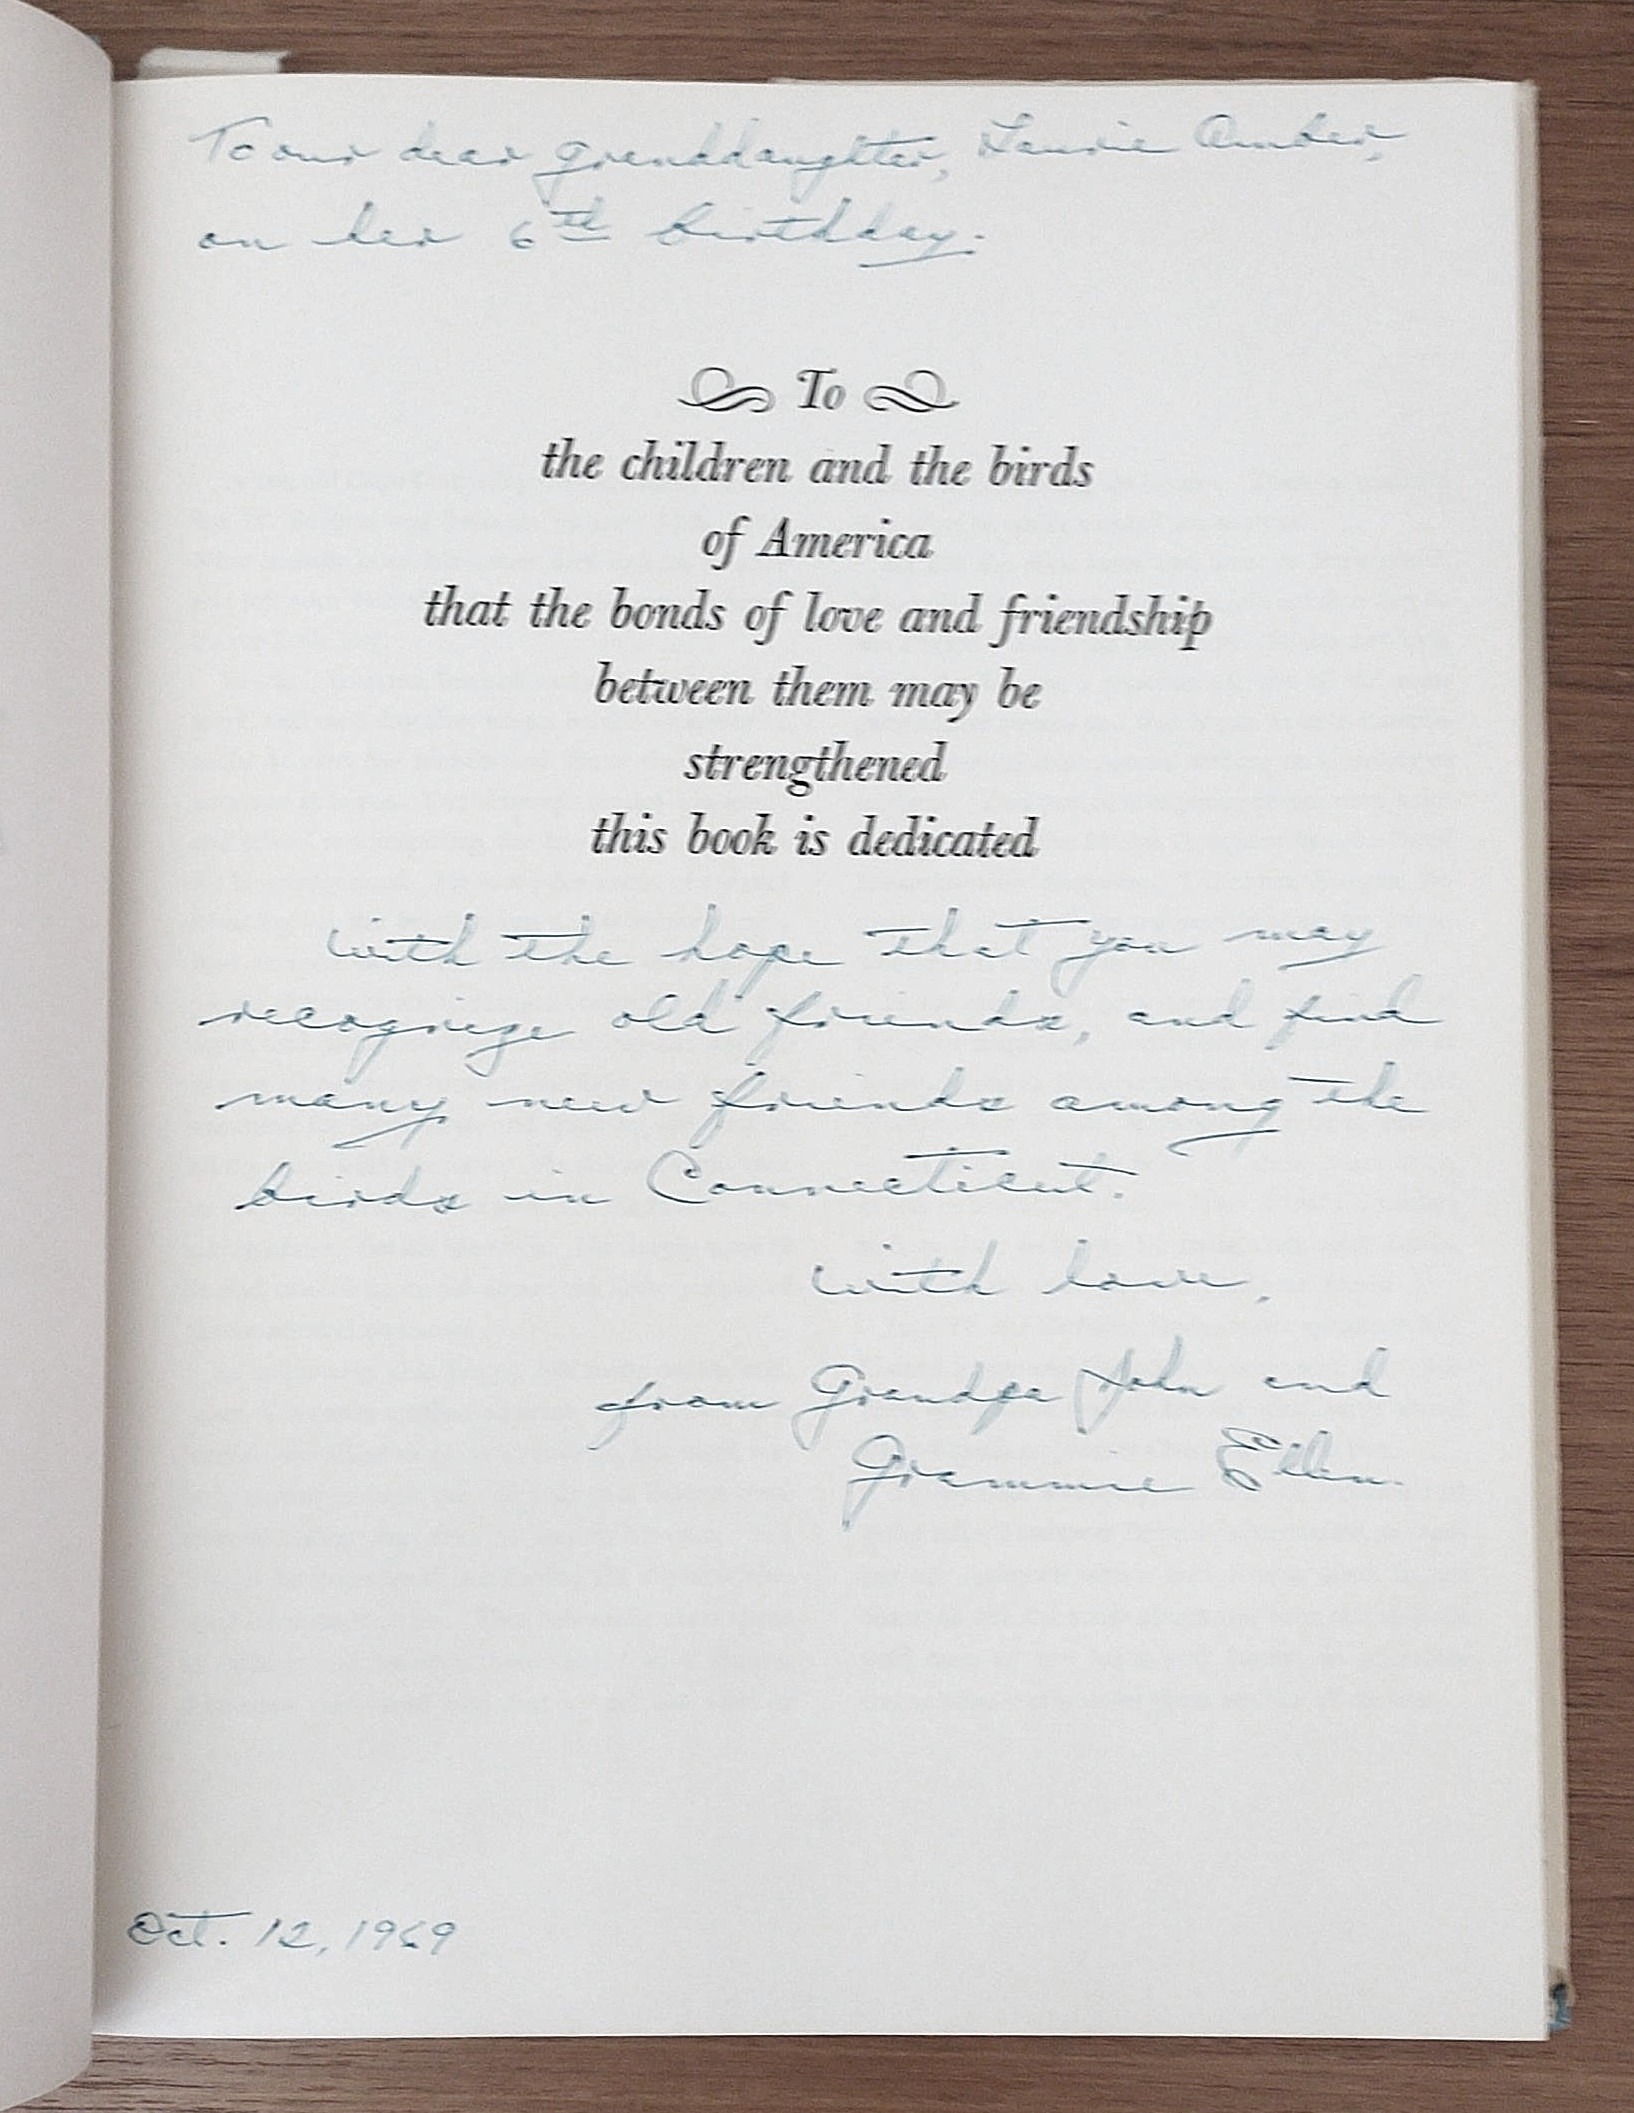 To our dear granddaughter, Laurie Amber,
on her 6th birthday.
To
the children and the birds
of America
that the bonds of love and friendship
between them may be
strengthened
this book is dedicated
with the hope that you may
recognize old friends, and find
many new friends among the
birds in Connecticut.
With love,
from Grandpa John and
Grammie Ellen.
Oct. 12, 1969